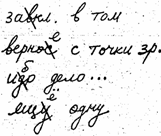 закл. в том
верное с точки зр.
ибо дело...
ещё одну